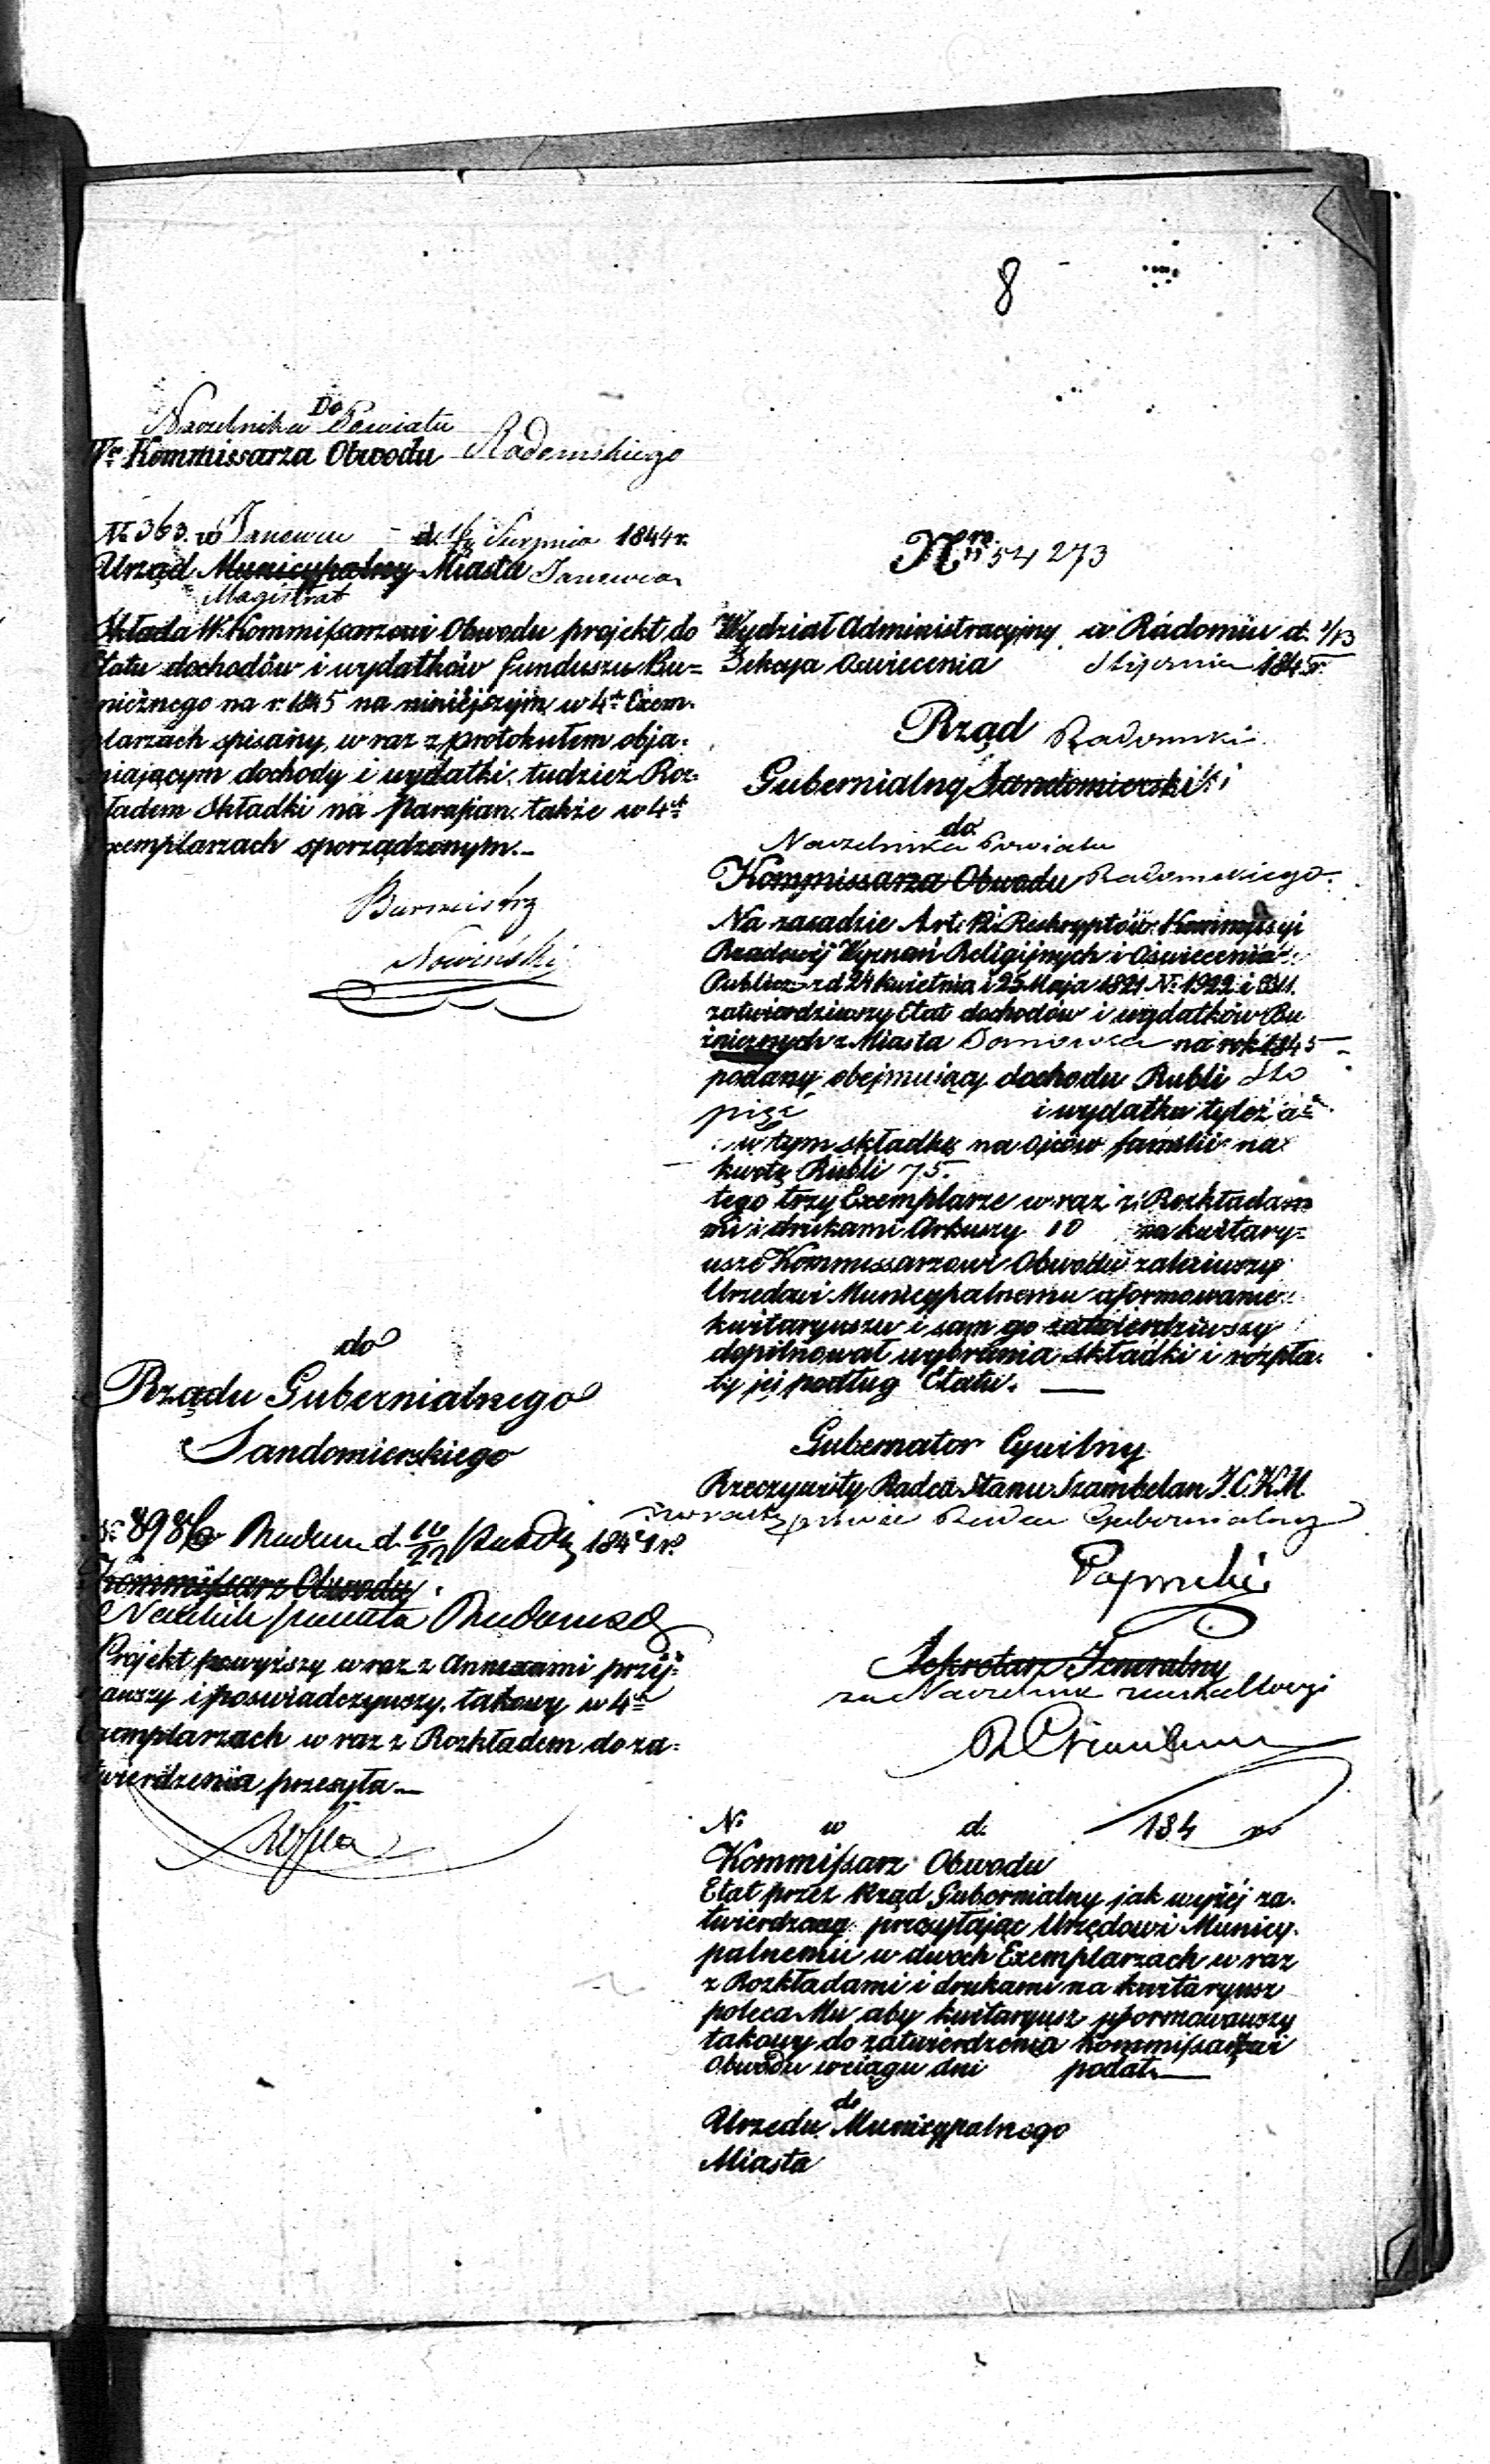 8
Do
Naczelnika Powiatu
Wo Kommissarza Obwodu Radomskiego
No 363. w Janowcu d. Sierpnia 1844 r.
Urząd Municypalny Miasta Janowca
Magistrat
Składa W. Kommissarzowi Obwodu projekt do
Etatu dochodów i wydatków funduszu Bu=
żnicznego na r. 1845 na niniejszym w 4ch Exem-
plarzach spisany, wraz z protokułem obja-
śniającym dochody i wydatki, tudzież Roz-
kładem Składki na Parafian także w 4ch
Exemplarzach sporządzonym.—
Burmistrz
Nowiński
do
Rządu Gubernialnego
Sandomierskiego
No 8986 Radom d. 10/22 Paźdz 1844 r.
Kommissarz Obwodu
Naczelnik powiatu Radomsk
Projekt powyższy wraz z Annexami przej-
rzawszy i poświadczywszy, takowy w 4ch
Exemplarzach wraz z Rozkładem do za-
twierdzenia przesyła—
Nro 54273
Wydział Administracyjny w Radomiu d. 1/13
Sekcya Oświecenia Stycznia 1845 r.
Rząd Radomski
Gubernialny Sandomierski
do
Naczelnika Powiatu
Kommissarza Obwodu Radomskiego
Na zasadzie Art. 12. Reskryptów Kommissyi
Rządowéj Wyznań Religijnych i Oświecenia
Publicz: z d 24 Kwietnia i 25 Maja 1821 No 1922 i
zatwierdziwszy Etat dochodów i wydatków Bu
żnicznych z Miasta Janowca na rok 1845
podany, obejmujący dochodu Rubli Sto
pięć i wydatku tyleż a
w tym składkę na ojców familii na
kwotę Rubli 75.
tego trzy Exemplarze wraz z Rozkładam
mi i drukami Arkuszy 10 na kwitary-
usze Kommissarzowi Obwodu zaleciwszy
Urzędowi Municypalnemu uformowanie
kwitaryuszu i sam go zatwierdziwszy
dopilnował wybrania składki i rozpła-
ty jéj podług Etatu.—
Gubernator Cywilny
Rzeczywisty Radca Stanu Szambelan J.C.K.M.
Radca Gubernialny
Paprocki
Sekretarz Jeneralny
za Naczelnika
No w d. 184 r
Kommissarz Obwodu
Etat przez Rząd Gubernialny jak wyżéj za-
twierdzony przesyłając Urzędowi Municy-
palnemu w dwóch Exemplarzach wraz
z Rozkładami i drukami na kwitaryusz
poleca Mu aby kwitaryusz uformowawszy
takowy do zatwierdzenia Kommissarzowi
Obwodu w ciągu dni podał.—
do
Urzędu Municypalnego
Miasta